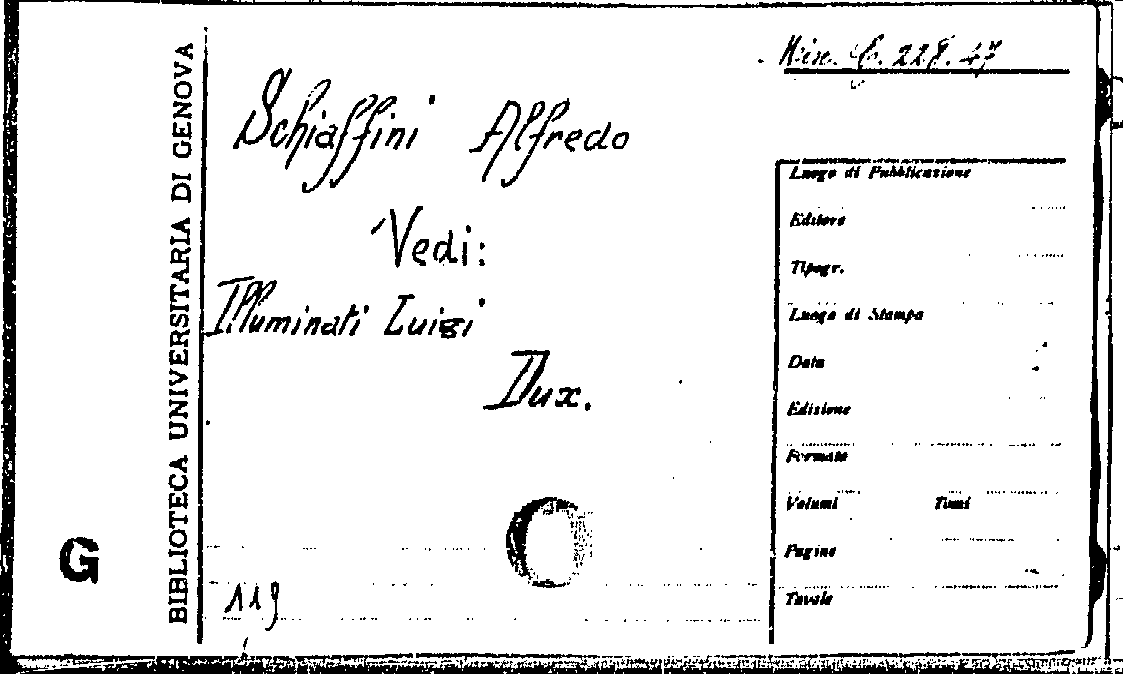 Min. G. 228. 47
Schiaffini Alfredo
Vedi:
Illuminati Luigi
Dux.
119
G
BIBLIOTECA UNIVERSITARIA DI GENOVA
Luogo di Pubblicazione
Editore
Tipogr.
Luogo di Stampa
Data
Edizione
Formato
Volumi Tomi
Pagine
Tavole